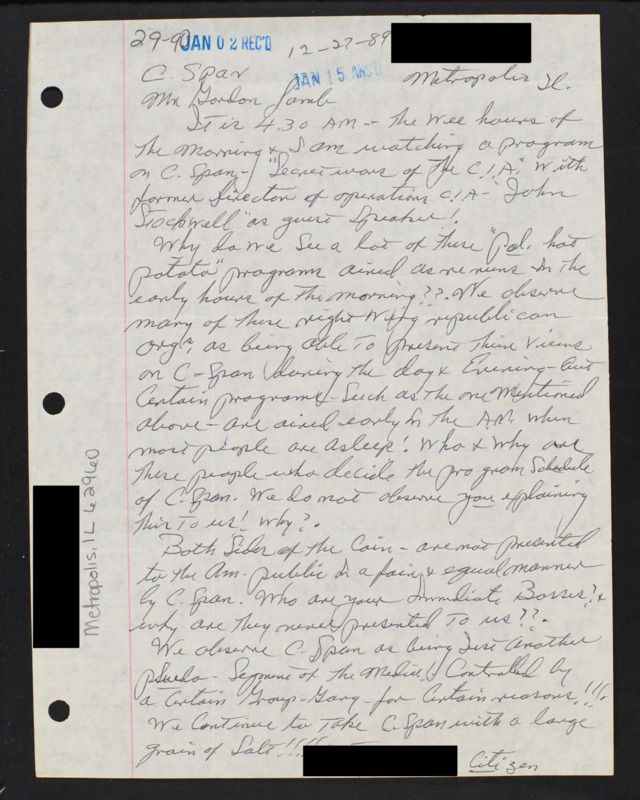 29-90 JAN 02 REC'D 12-27-89
C. Span JAN 15 Metropolis Il.
Mr. Gordon Lamb
It is 4:30 AM - the wee hours of
the morning & I am watching a program
on C. Span, - "Secret wars of the C.I.A." with
former Director of operations C.I.A - "John
Stockwell" as guest speaker!
Why do we see a lot of these "pol. hot
potato" programs aired as re runs in the
early hours of the morning??. We observe
many of these right wing republican
orgs, as being able to present their views
on C-Span during the day & Evening - but
Certain programs - Such as the one mentioned
above - are aired early in the AM when
most people are asleep! Who & Why are
these people who decide the program schedule
of C. Span. We do not observe you explaining
this to us! Why?.
Both Sides of the Coin - are not presented
to the Am. public in a fair & equal manner
by C. Span. Who are your immediate Bosses? &
why are they never presented to us??.
We observe C. Span as being Just another
psuedo - Segment of the Media! Controlled by
a Certain Group - Gang - for Certain reasons!!!.
We Continue to take C. Span with a large
grain of Salt!!!!
Citizen
Metropolis, IL 62960